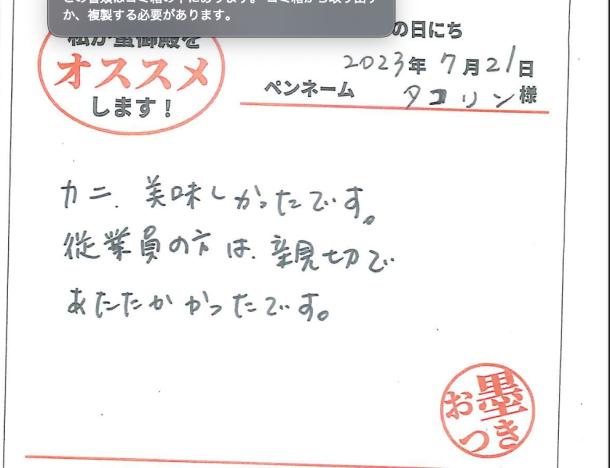 か、複製する必要があります。
の日にち
私が蟹御殿を
オススメ
します！
2023年 7月21日
ペンネーム タコリン様
カニ、美味しかったです。
従業員の方は、親切で
あたたかかったです。
お墨つき